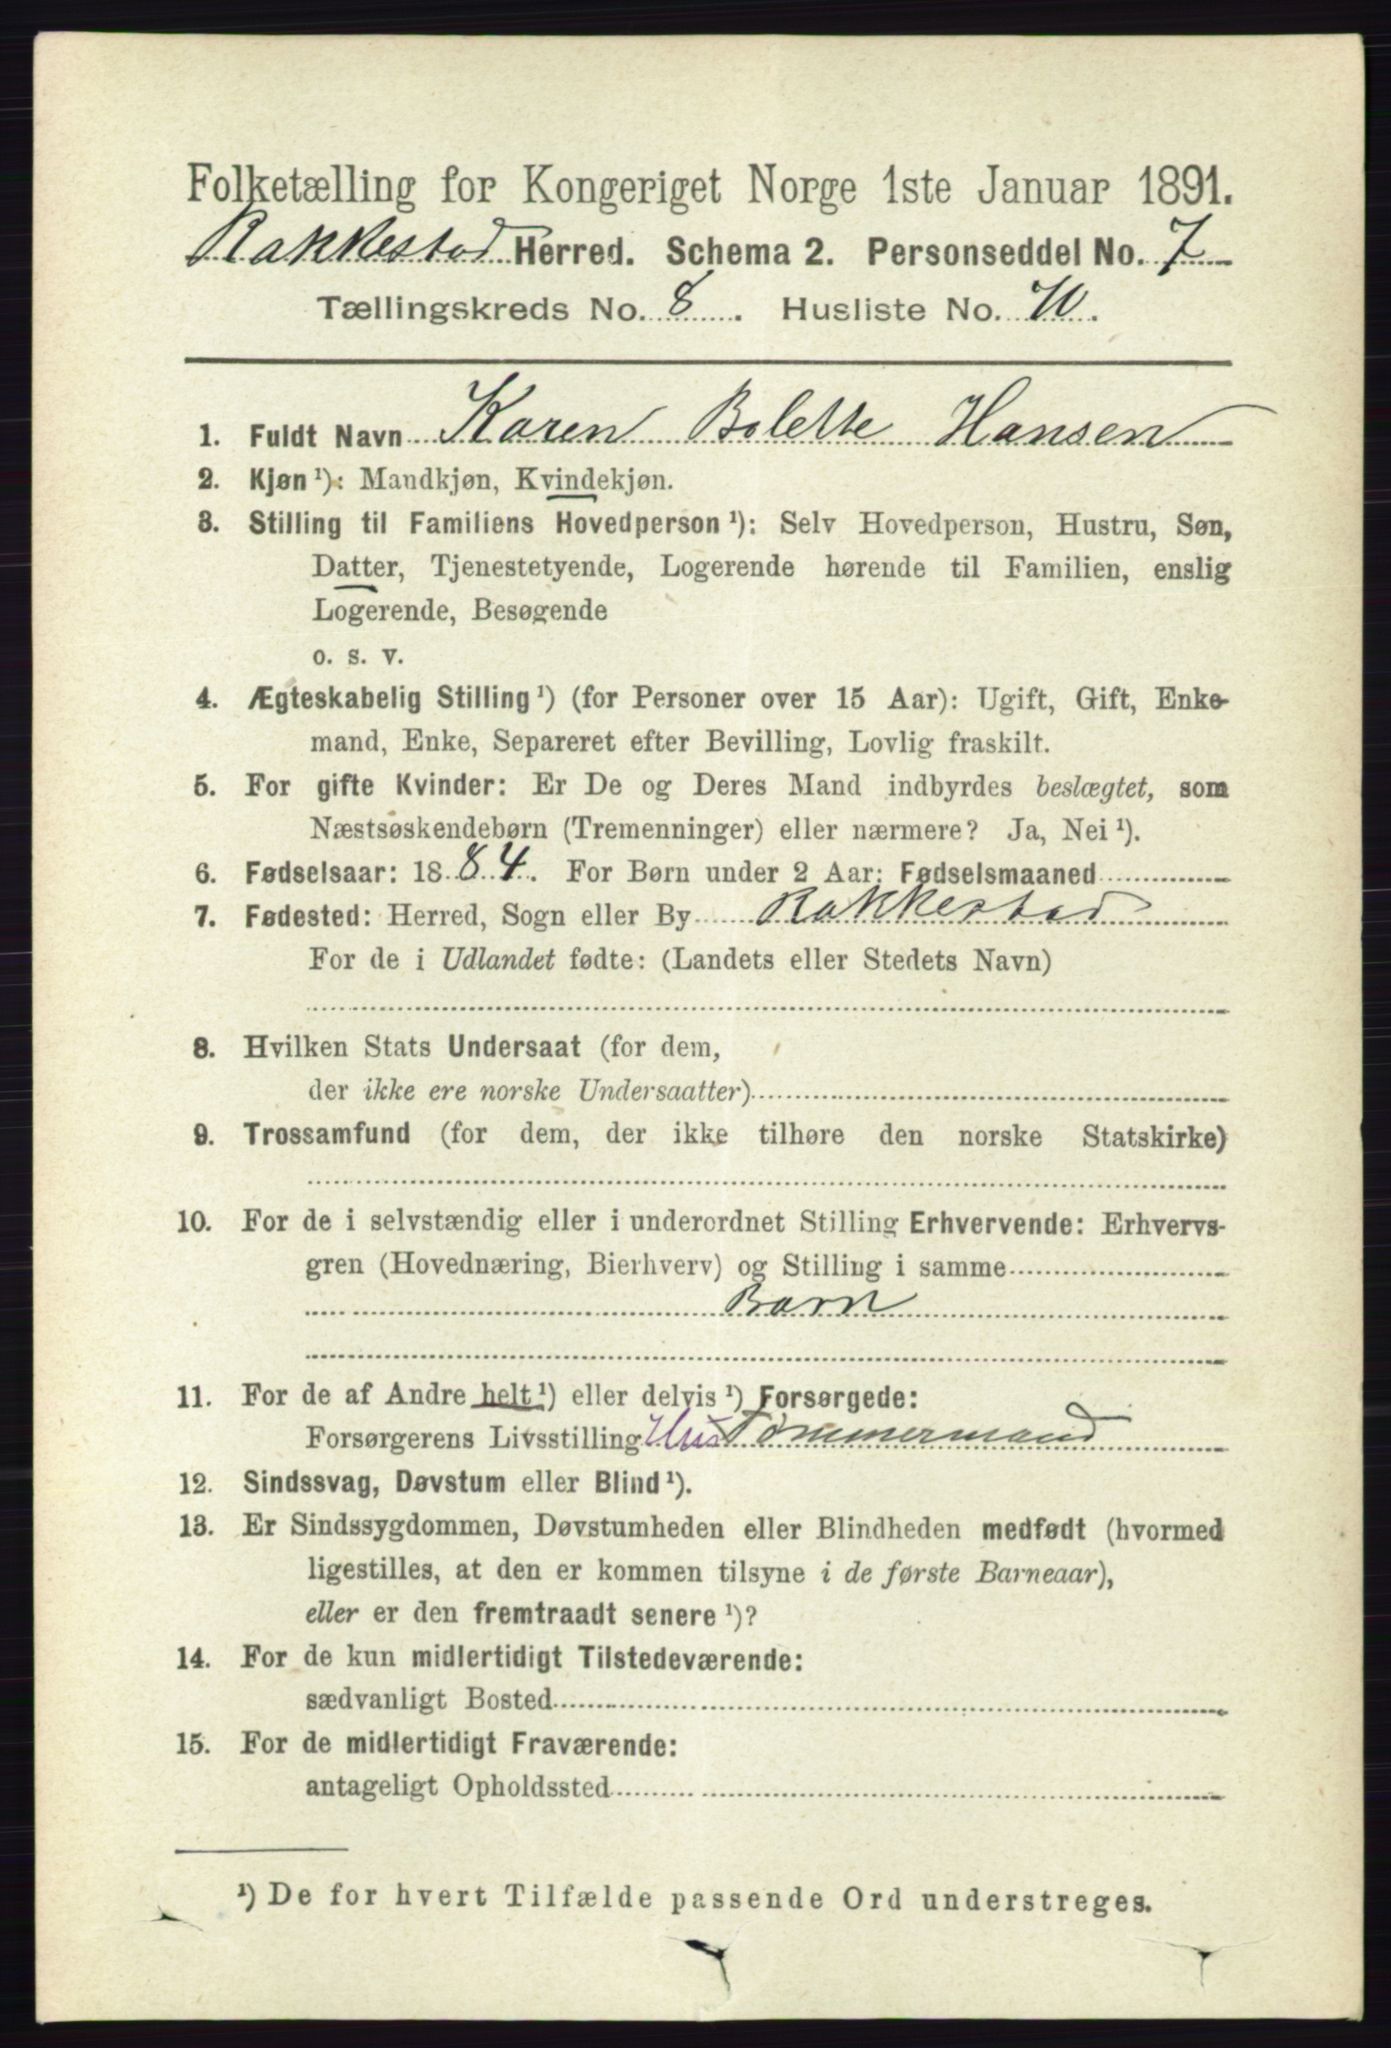 Folketælling for Kongeriget Norge 1ste Januar 1891.
Rakkestad Herred. Schema 2. Personseddel No. 7
Tællingskreds No. 8. Husliste No. 70.
1. Fuldt Navn Karen Bolette Hansen
2. Kjøn ¹): Mandkjøn, Kvindekjøn.
3. Stilling til Familiens Hovedperson ¹): Selv Hovedperson, Hustru, Søn,
Datter, Tjenestetyende, Logerende hørende til Familien, enslig
Logerende, Besøgende
o. s. v.
4. Ægteskabelig Stilling ¹) (for Personer over 15 Aar): Ugift, Gift, Enke-
mand, Enke, Separeret efter Bevilling, Lovlig fraskilt.
5. For gifte Kvinder: Er De og Deres Mand indbyrdes beslægtet, som
Næstsøskendebørn (Tremenninger) eller nærmere? Ja, Nei ¹).
6. Fødselsaar: 1884. For Børn under 2 Aar: Fødselsmaaned
7. Fødested: Herred, Sogn eller By Rakkestad
For de i Udlandet fødte: (Landets eller Stedets Navn)
8. Hvilken Stats Undersaat (for dem,
der ikke ere norske Undersaatter)
9. Trossamfund (for dem, der ikke tilhøre den norske Statskirke)
10. For de i selvstændig eller i underordnet Stilling Erhvervende: Erhvervs-
gren (Hovednæring, Bierhverv) og Stilling i samme
Barn
11. For de af Andre helt ¹) eller delvis ¹) Forsørgede:
Forsørgerens Livsstilling Hus Tømmermand
12. Sindssvag, Døvstum eller Blind ¹).
13. Er Sindssygdommen, Døvstumheden eller Blindheden medfødt (hvormed
ligestilles, at den er kommen tilsyne i de første Barneaar),
eller er den fremtraadt senere ¹)?
14. For de kun midlertidigt Tilstedeværende:
sædvanligt Bosted
15. For de midlertidigt Fraværende:
antageligt Opholdssted
¹) De for hvert Tilfælde passende Ord understreges.